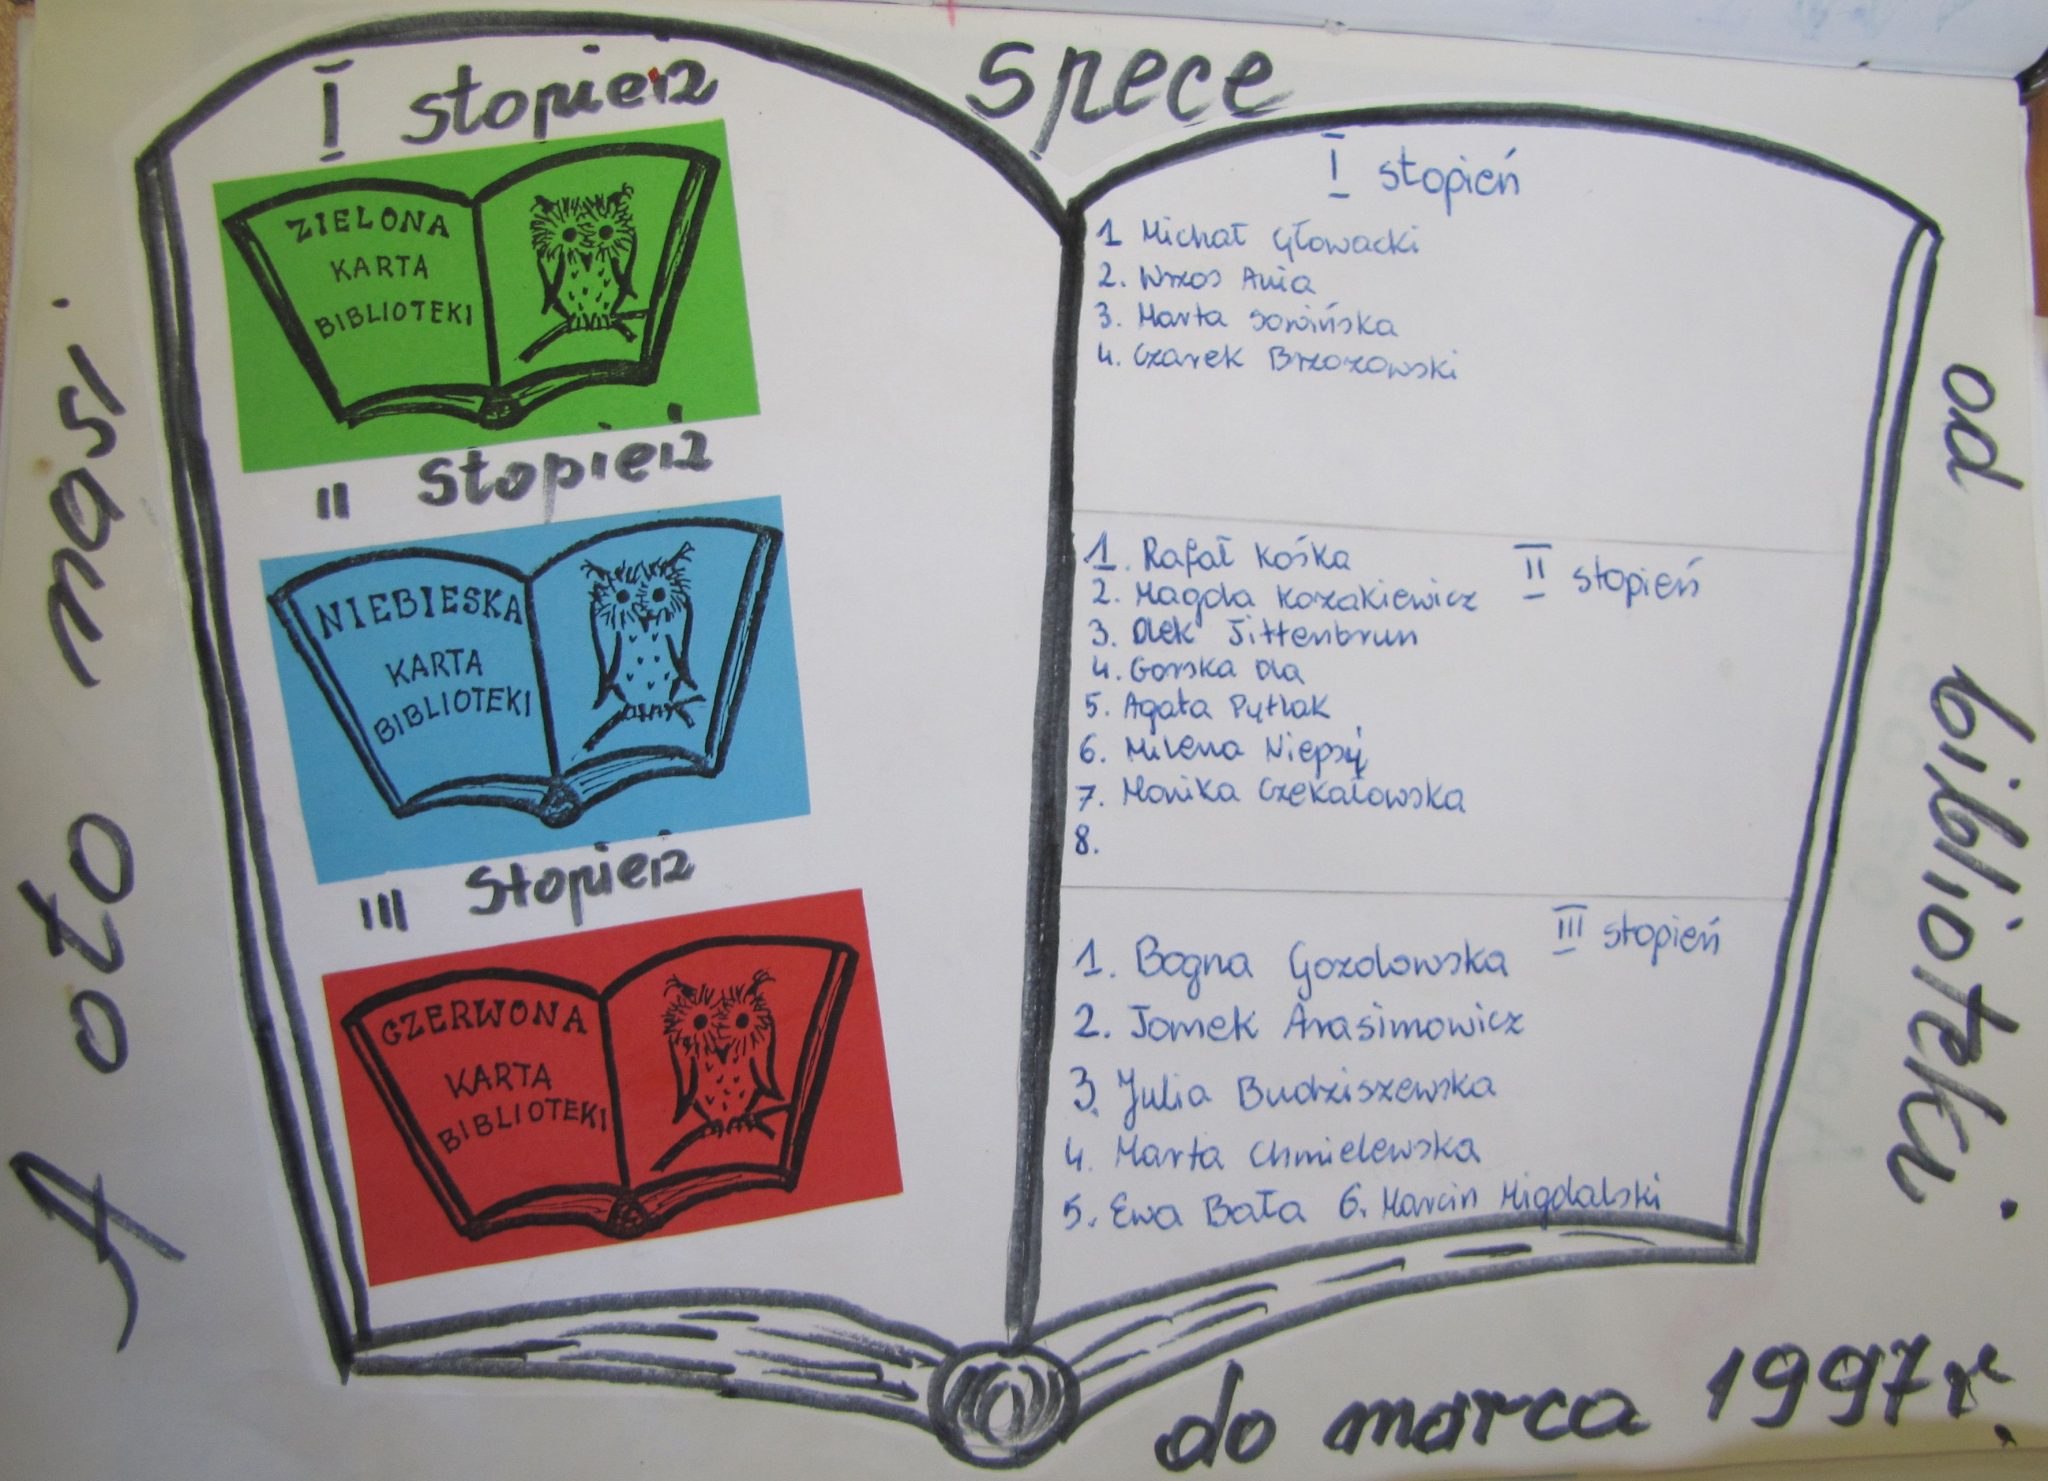 A oto nasi
spece
od biblioteki
do marca 1997r.
I stopień
ZIELONA
KARTA
BIBLIOTEKI
II stopień
NIEBIESKA
KARTA
BIBLIOTEKI
III stopień
CZERWONA
KARTA
BIBLIOTEKI
I stopień
1 Michał Głowacki
2. Wrzos Ania
3. Marta Sowińska
4. Czarek Brzozowski
II stopień
1. Rafał Kośka
2. Magda Kozakiewicz
3. Olek Jittenbrun
4. Gorska Ola
5. Agata Pytlak
6. Milena Niepsý
7. Monika Czekałowska
8.
III stopień
1. Bogna Gozdowska
2. Tomek Arasimowicz
3. Julia Budziszewska
4. Marta Chmielewska
5. Ewa Bała 6. Marcin Migdalski